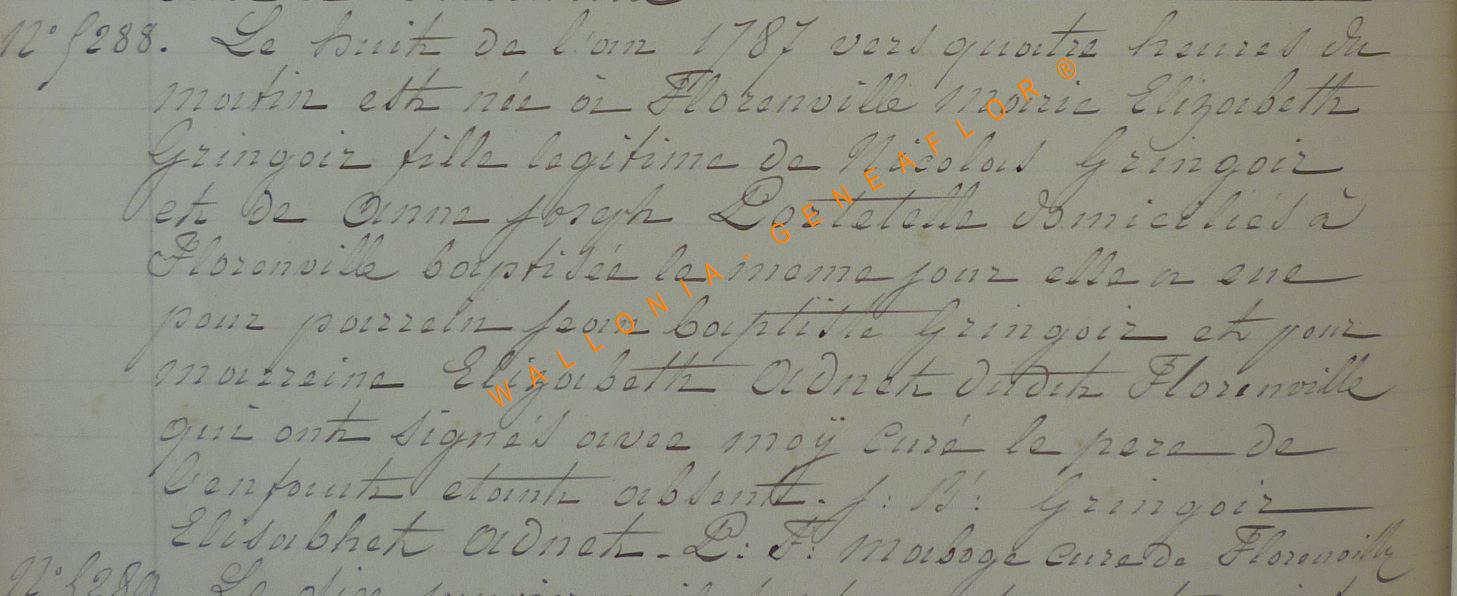 N° 5288. Le huit de l'an 1787 vers quatre heures du
matin est née à Florenville Marie Elizabeth
Gringoir fille legitime de Nicolas Gringoir
et de Anne Joseph Portetelle domiciliés à
Florenville baptisée le meme jour elle a eue
pour parrein Jean baptiste Gringoir et pour
marreine Elizabeth Adnet dudit Florenville
qui ont signés avec moÿ curé le pere de
l'enfant etant absent. J: B: Gringoir
Elisabhet Adnet. P: F: Maboge cure de Florenville
N° 5289. Le dix
WALLONIA-GENEAFLOR®